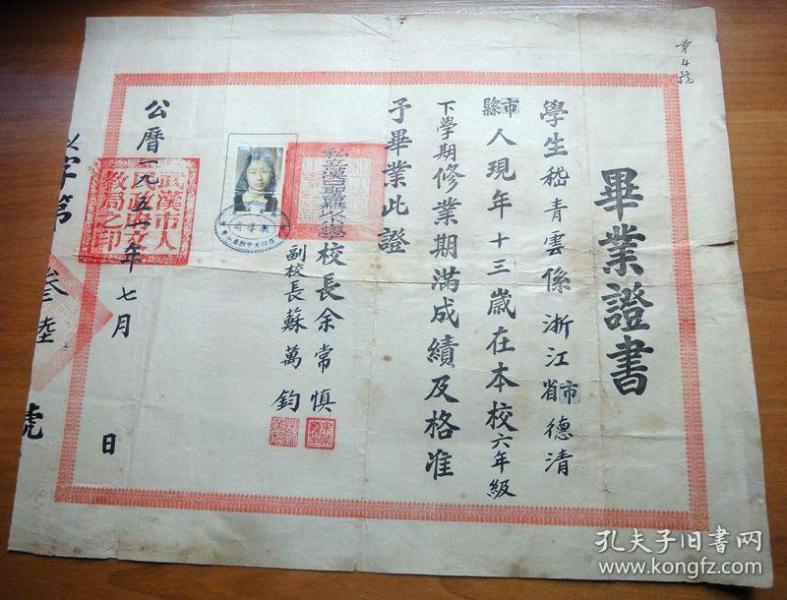 第4號
畢業證書
學生嵇青雲係浙江省市德清
縣市人現年十三歲在本校六年級
下學期修業期滿成績及格准
予畢業此證
私立漢口聖羅以小學校長余常慎
副校長蘇萬鈞
公曆一九五一年七月 日
武漢市人民政府文教局之印
字第 叁 陸 號
孔夫子旧书网
www.kongfz.com